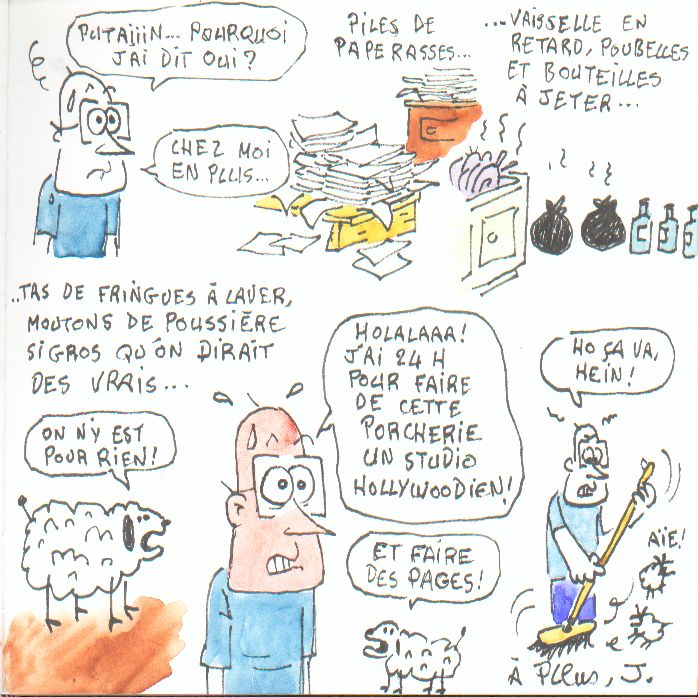 PUTAIIIN... POURQUOI
J'AI DIT OUI?
CHEZ MOI
EN PLUS...
PILES DE
PAPERASSES...
...VAISSELLE EN
RETARD, POUBELLES
ET BOUTEILLES
À JETER...
..TAS DE FRINGUES À LAVER,
MOUTONS DE POUSSIÈRE
SI GROS QU'ON DIRAIT
DES VRAIS...
ON N'Y EST
POUR RIEN!
HOLALAAA!
J'AI 24 H
POUR FAIRE
DE CETTE
PORCHERIE
UN STUDIO
HOLLYWOODIEN!
ET FAIRE
DES PAGES!
HO ÇA VA,
HEIN!
AÏE!
À PLUS, J.